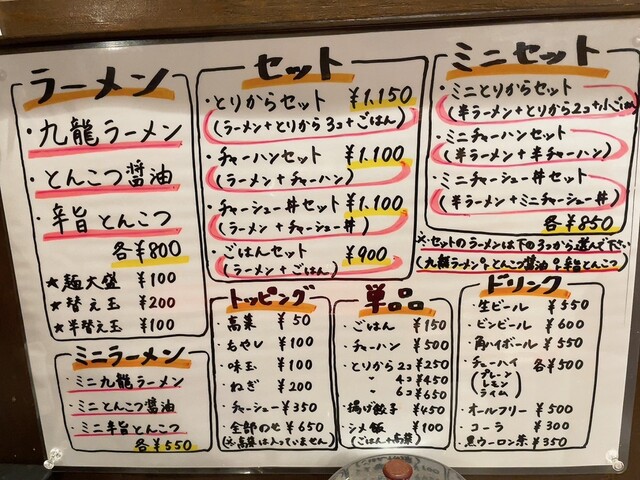 ラーメン
・九龍ラーメン
・とんこつ醤油
・辛旨とんこつ
各¥800
★麺大盛 ¥100
★替え玉 ¥200
★半替え玉 ¥100
ミニラーメン
・ミニ九龍ラーメン
・ミニとんこつ醤油
・ミニ辛旨とんこつ
各¥550
セット
・とりからセット ¥1,150
(ラーメン+とりから3コ+ごはん)
・チャーハンセット ¥1,100
(ラーメン+チャーハン)
・チャーシュー丼セット ¥1,100
(ラーメン+チャーシュー丼)
・ごはんセット ¥900
(ラーメン+ごはん)
ミニセット
・ミニとりからセット
(半ラーメン+とりから2コ+小ごはん)
・ミニチャーハンセット
(半ラーメン+半チャーハン)
・ミニチャーシュー丼セット
(半ラーメン+ミニチャーシュー丼)
各¥850
※セットのラーメンは下の3つから選んで下さい
(九龍ラーメン とんこつ醤油 辛旨とんこつ)
トッピング
・高菜 ¥50
・もやし ¥100
・味玉 ¥100
・ねぎ ¥200
・チャーシュー ¥350
・全部のせ ¥650
(※高菜は入っていません)
単品
・ごはん ¥150
・チャーハン ¥500
・とりから 2コ ¥250
〃 4コ ¥450
6コ ¥650
・揚げ餃子 ¥450
・シメ飯 ¥100
(ごはん+高菜)
ドリンク
・生ビール ¥550
・ビンビール ¥600
・角ハイボール ¥550
・チューハイ 各¥500
(プレーン
レモン
ライム)
・オールフリー ¥500
・コーラ ¥300
・黒ウーロン茶 ¥350